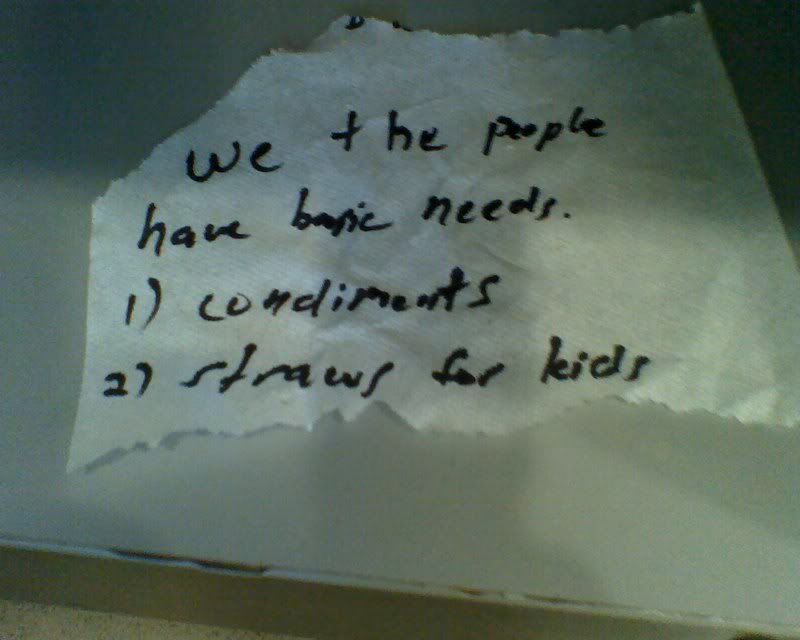 we the people
have basic needs.
1) condiments
2) straws for kids